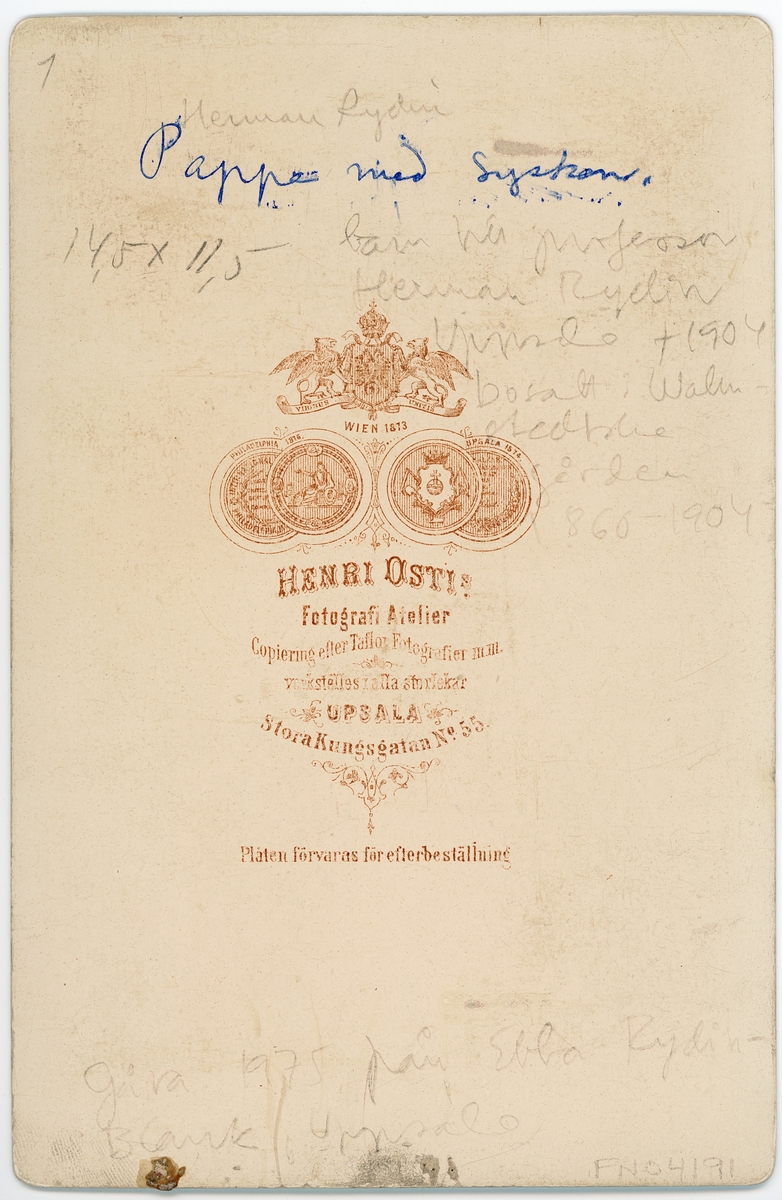 1
Herman Rydin
Pappa med syskon.
14,5 x 11,5
barn till professor
Herman Rydin
Uppsala †1904
bosatt i Walm-
stedtska
gården
1860-1904
VIRIBUS UNITIS
WIEN 1873
PHILADELPHIA 1876.
UPSALA 1874.
HENRI OSTI
Fotografi Atelier
Copiering efter Taflor Fotografier m.m.
verkställes i alla storlekar
UPSALA
Stora Kungsgatan No 55.
Plåten förvaras för efterbeställning
Gåva 1975 från Ebba Rydin-
Blank, Uppsala
FN04191